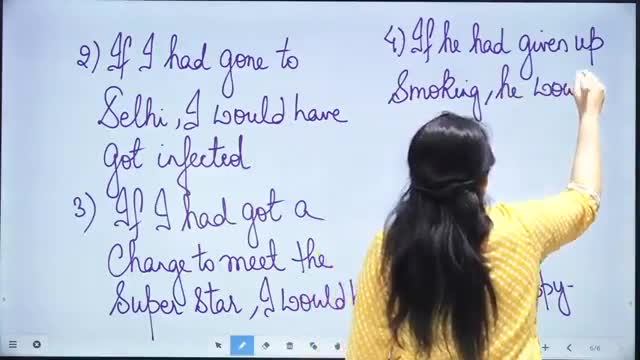 2) If I had gone to
Delhi, I would have
got infected
3) If I had got a
Change to meet the
Super Star, I would
4) If he had given up
Smoking, he wou
6/6